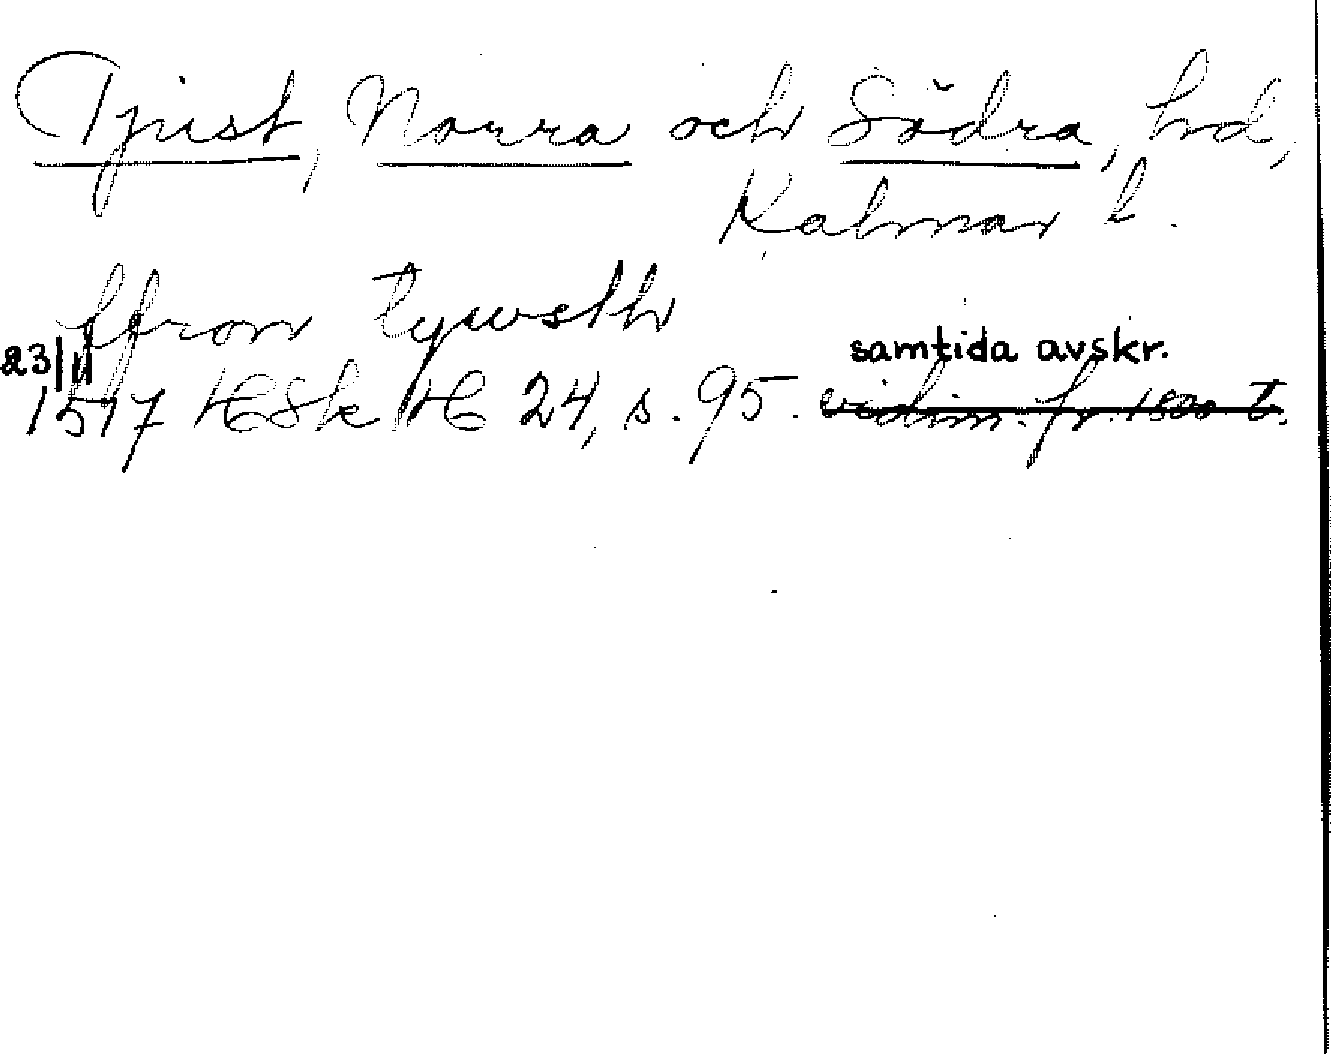 Tjust, Norra och Södra, hd,
Kalmar l.
ffron tywsth
samtida avskr.
23/11
1517 HSk H 24, s. 95. vidim. fr. 1500 t.